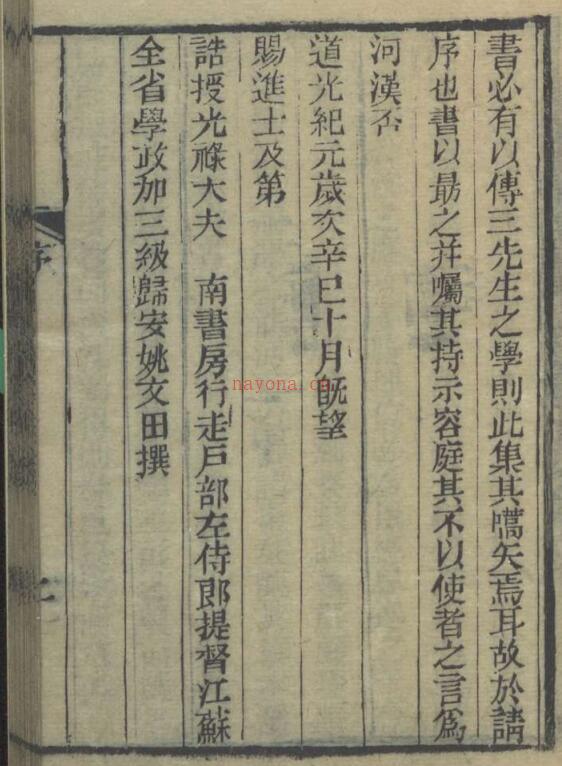 書必有以傳三先生之學則此集其嚆矢焉耳故於請
序也書以勗之并囑其持示容庭其不以使者之言爲
河漢否
道光紀元歲次辛巳十月旣望
賜進士及第
誥授光祿大夫　南書房行走戶部左侍郎提督江蘇
全省學政加三級歸安姚文田撰
序
nayona.cn